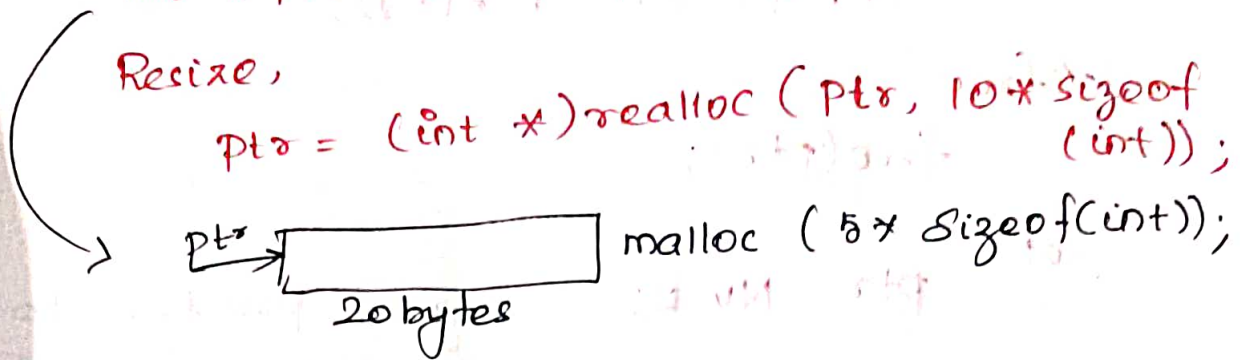 Resize,
ptr = (int *)realloc (ptr, 10* sizeof
(int));
ptr
malloc (5* sizeof(int));
20 bytes